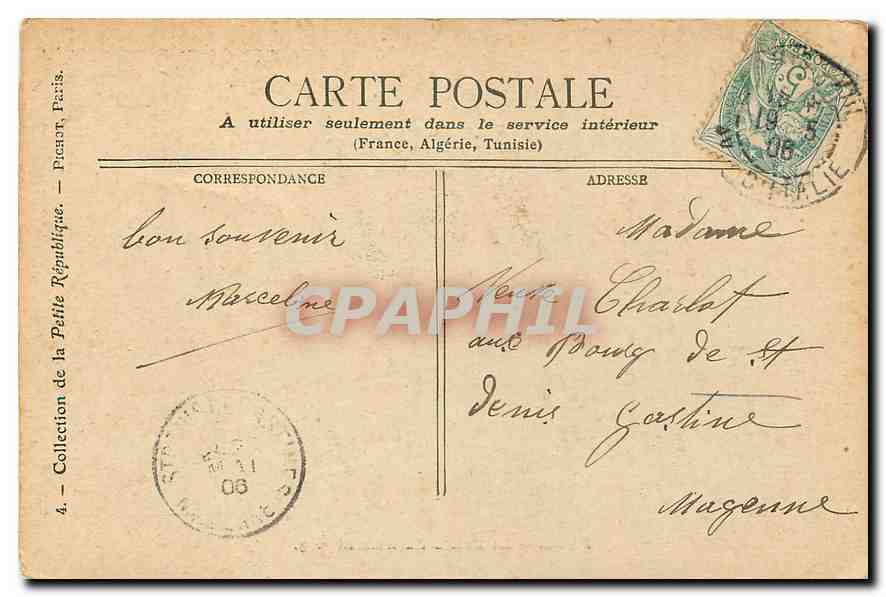 CARTE POSTALE
A utiliser seulement dans le service intérieur
(France, Algérie, Tunisie)
CORRESPONDANCE
bon souvenir
Marceline
ADRESSE
Madame
Veuve Charlot
aux Bourg de St
Denis Gastine
Mayenne
4. — Collection de la Petite République. — PICHOT, Paris.
5
19
5
06
D'ITALIE
MAI
06
CPAPHIL